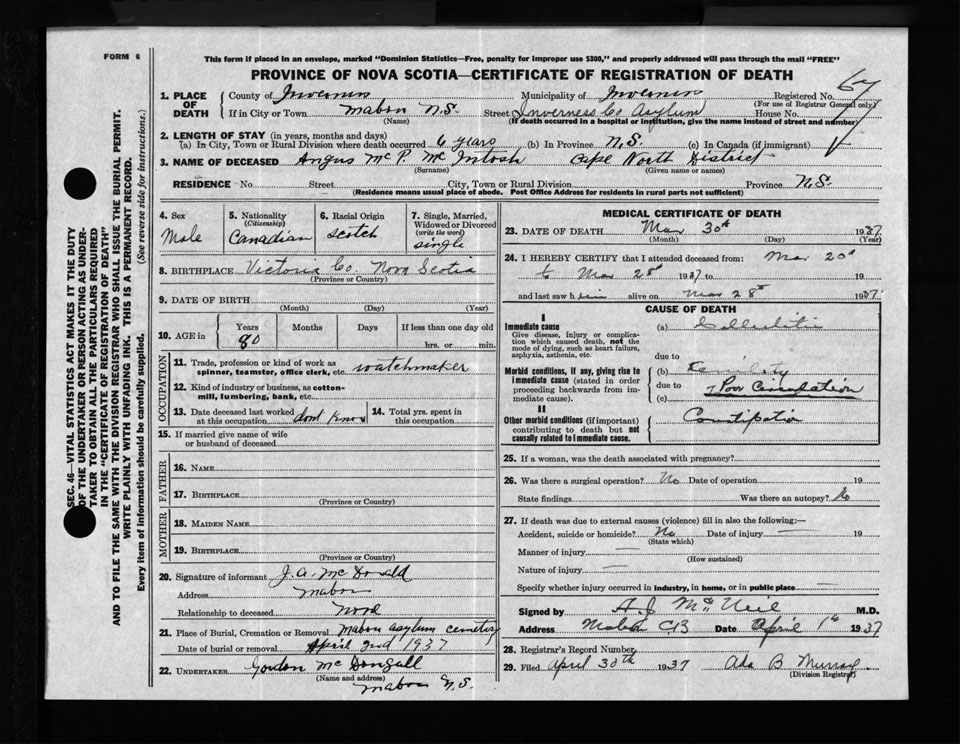 FORM 6
This form if placed in an envelope, marked "Dominion Statistics—Free, penalty for improper use $300," and properly addressed will pass through the mail "FREE"
PROVINCE OF NOVA SCOTIA—CERTIFICATE OF REGISTRATION OF DEATH
SEC. 46—VITAL STATISTICS ACT MAKES IT THE DUTY
OF THE UNDERTAKER OR PERSON ACTING AS UNDER-
TAKER TO OBTAIN ALL THE PARTICULARS REQUIRED
IN THE "CERTIFICATE OF REGISTRATION OF DEATH"
AND TO FILE THE SAME WITH THE DIVISION REGISTRAR WHO SHALL ISSUE THE BURIAL PERMIT.
WRITE PLAINLY WITH UNFADING INK. THIS IS A PERMANENT RECORD.
Every item of information should be carefully supplied. (See reverse side for instructions.)
1. PLACE OF DEATH County of Inverness Municipality of Inverness Registered No. 67
(For use of Registrar General only)
If in City or Town Mabou N.S. Street Inverness Co Asylum House No.
(Name) (If death occurred in a hospital or institution, give the name instead of street and number)
2. LENGTH OF STAY (in years, months and days)
(a) In City, Town or Rural Division where death occurred 6 years (b) In Province N.S. (c) In Canada (if immigrant)
3. NAME OF DECEASED Angus McP. McIntosh Cape North District
(Surname) (Given name or names)
RESIDENCE - No. Street City, Town or Rural Division Province N.S.
(Residence means usual place of abode. Post Office Address for residents in rural parts not sufficient)
4. Sex Male
5. Nationality (Citizenship) Canadian
6. Racial Origin Scotch
7. Single, Married, Widowed or Divorced (write the word) single
8. BIRTHPLACE Victoria Co. Nova Scotia
(Province or Country)
9. DATE OF BIRTH
(Month) (Day) (Year)
10. AGE in Years 80 Months Days If less than one day old
hrs. or min.
OCCUPATION
11. Trade, profession or kind of work as
spinner, teamster, office clerk, etc. watchmaker
12. Kind of industry or business, as cotton-
mill, lumbering, bank, etc.
13. Date deceased last worked at this occupation dont know
14. Total yrs. spent in this occupation
15. If married give name of wife
or husband of deceased
FATHER
16. NAME
17. BIRTHPLACE
(Province or Country)
MOTHER
18. MAIDEN NAME
19. BIRTHPLACE
(Province or Country)
20. Signature of informant J. A. McDonald
Address Mabou
Relationship to deceased None
21. Place of Burial, Cremation or Removal Mabou asylum cemetery
Date of burial or removal April 2nd 1937
22. UNDERTAKER Gordon McDougall
(Name and address)
Mabou N.S.
MEDICAL CERTIFICATE OF DEATH
23. DATE OF DEATH Mar 30th 1937
(Month) (Day) (Year)
24. I HEREBY CERTIFY that I attended deceased from: Mar 20th
to Mar 28th 1937 to 19
and last saw h alive on Mar 28th 1937
CAUSE OF DEATH
I
Immediate cause
Give disease, injury or complica-
tion which caused death, not the
mode of dying, such as heart failure,
asphyxia, asthenia, etc.
(a)
due to
Morbid conditions, if any, giving rise to
immediate cause (stated in order
proceeding backwards from im-
mediate cause).
(b)
due to
(c) Poor Circulation
II
Other morbid conditions (if important)
contributing to death but not
causally related to immediate cause.
Constipation
25. If a woman, was the death associated with pregnancy?
26. Was there a surgical operation? No Date of operation 19
State findings Was there an autopsy? No
27. If death was due to external causes (violence) fill in also the following:—
Accident, suicide or homicide? No Date of injury 19
(State which)
Manner of injury
(How sustained)
Nature of injury
Specify whether injury occurred in industry, in home, or in public place
Signed by A. J. McNeil M.D.
Address Mabou C.B Date April 1st 1937
28. Registrar's Record Number
29. Filed April 30th 1937 Ada B Murray
(Division Registrar)